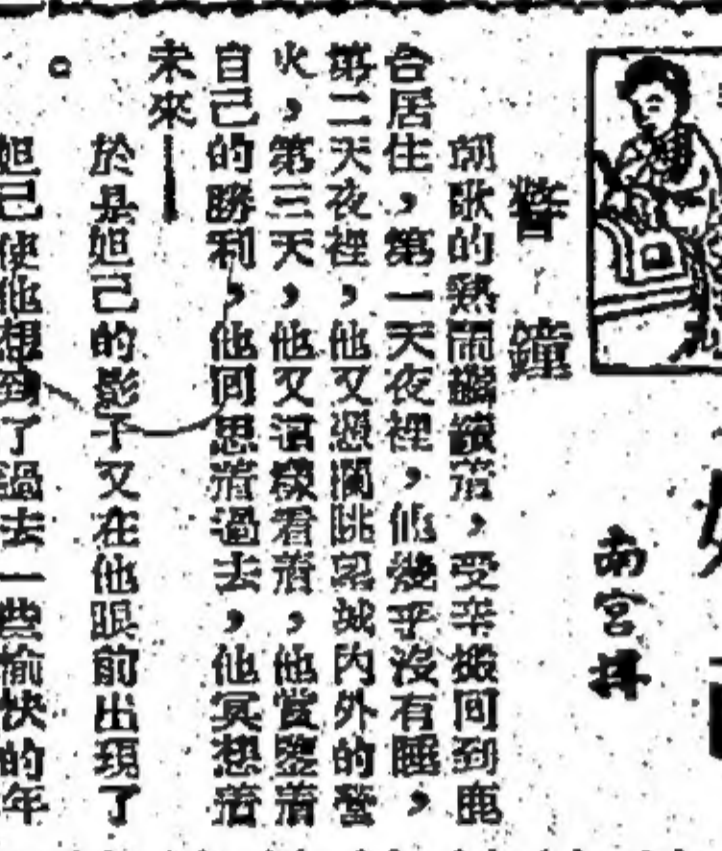 南宮搏
警鐘
朝歌的熱鬧繼續着,受辛搬回到鹿
台居住,第一天夜裡,他幾乎沒有睡,
第二天夜裡,他又憑欄眺望城內外的燈
火,第三天,他又這樣看着,他賞鑒着
自己的勝利,他回思着過去,他冥想着
未來——
於是妲己的影子又在他眼前出現了
。
妲己使他想到了過去一些愉快的年